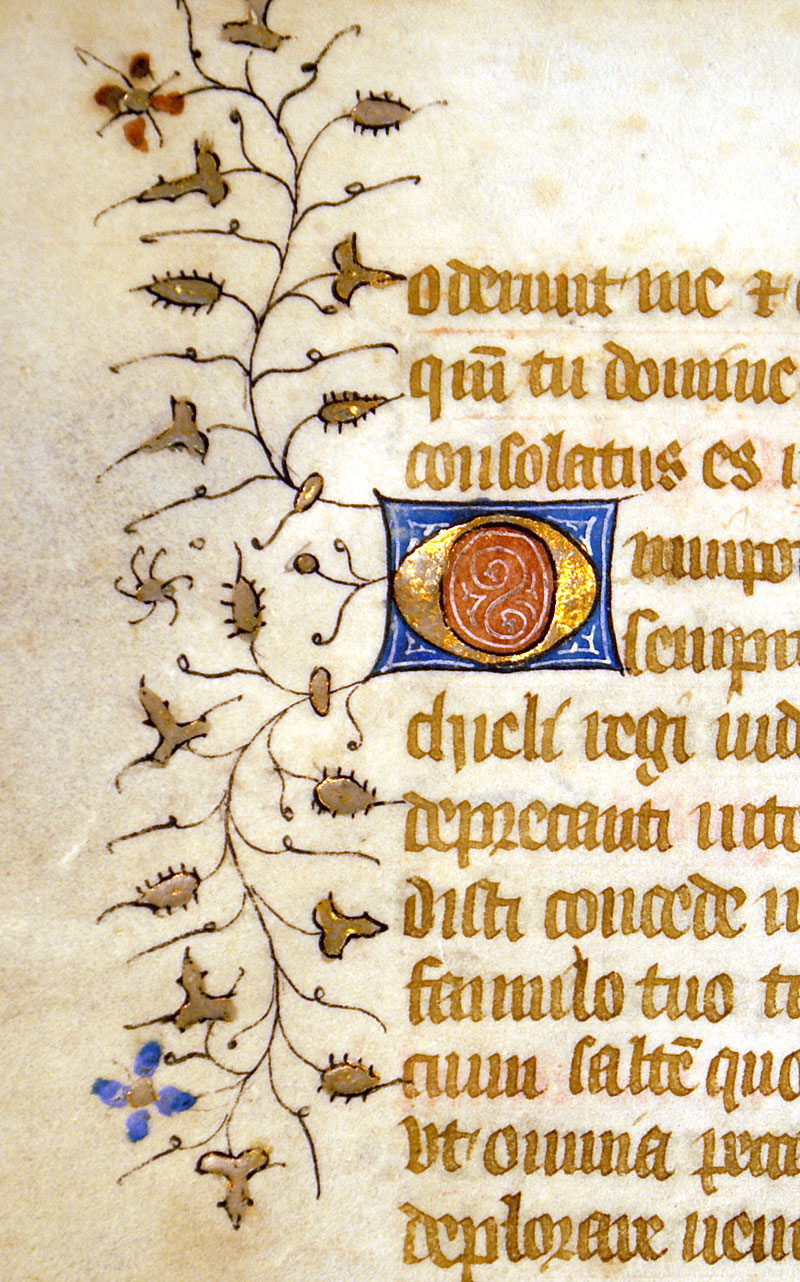 oderunt me ⁊
qm̄ tu domine
consolatus es
O mnipo
sempit
chieli regi iud
deprecanti uite
disti concede
famulo tuo
cium saltē quo
vt omnia pecca
deplorare